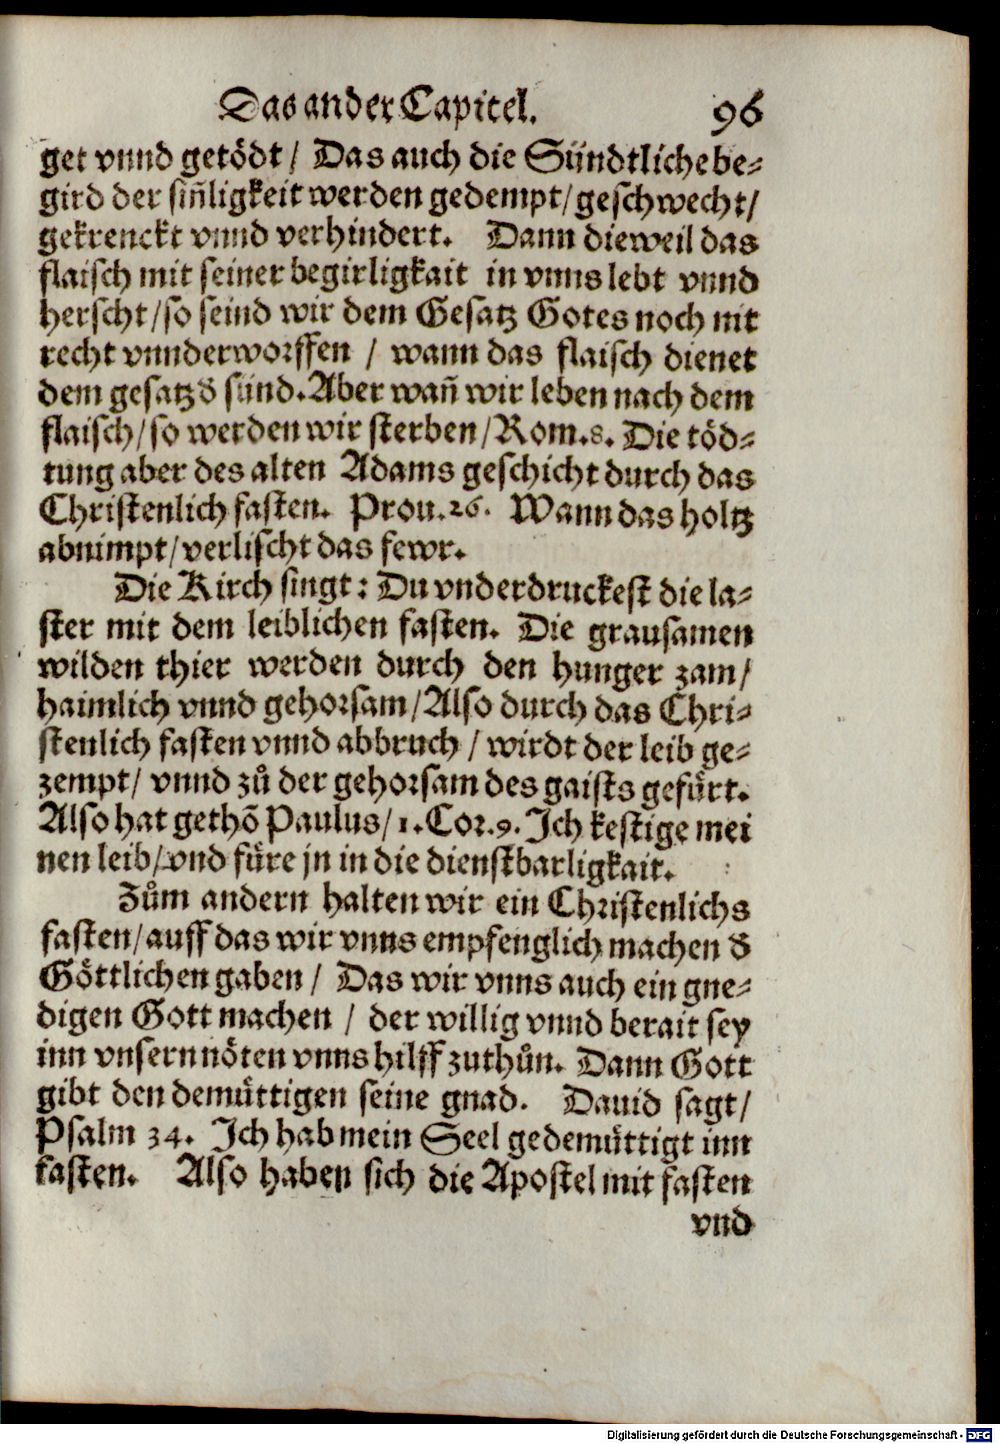 Das ander Capitel. 96
get vnnd getödt / Das auch die Sündtliche be⸗
gird der siñligkeit werden gedempt / geschwecht /
gekrenckt vnnd verhindert. Dann dieweil das
flaisch mit seiner begirligkait in vnns lebt vnnd
herscht / so seind wir dem Gesatz Gotes noch nit
recht vnnderworffen / wann das flaisch dienet
dem gesatz d̕ sünd. Aber wañ wir leben nach dem
flaisch / so werden wir sterben / Rom.8. Die töd⸗
tung aber des alten Adams geschicht durch das
Christenlich fasten. Prou.26. Wann das holtz
abnimpt / verlischt das fewr.
Die Kirch singt: Du vnderdruckest die la⸗
ster mit dem leiblichen fasten. Die grausamen
wilden thier werden durch den hunger zam /
haimlich vnnd gehorsam / Also durch das Chri⸗
stenlich fasten vnnd abbruch / wirdt der leib ge⸗
zempt / vnnd zů der gehorsam des gaists gefürt.
Also hat gethõ Paulus / 1.Cor.9. Ich kestige mei
nen leib / vnd füre jn in die dienstbarligkait.
Zům andern halten wir ein Christenlichs
fasten / auff das wir vnns empfenglich machen d̕
Göttlichen gaben / Das wir vnns auch ein gne⸗
digen Gott machen / der willig vnnd berait sey
inn vnsern nöten vnns hilff zuthůn. Dann Gott
gibt den demüttigen seine gnad. Dauid sagt /
Psalm 34. Ich hab mein Seel gedemüttigt inn
fasten. Also haben sich die Apostel mit fasten
vnd
Digitalisierung gefördert durch die Deutsche Forschungsgemeinschaft - DFG